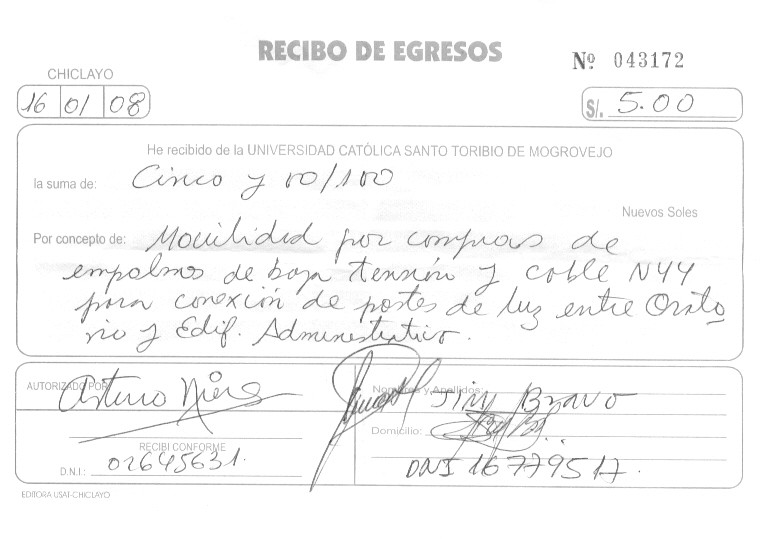 RECIBO DE EGRESOS
Nº 043172
CHICLAYO
16 01 08
S/. 5.00
He recibido de la UNIVERSIDAD CATÓLICA SANTO TORIBIO DE MOGROVEJO
la suma de: Cinco y 00/100
Nuevos Soles
Por concepto de: Movilidad por compras de
empalmes de baja tensión y cable NYY
para conexión de postes de luz entre Orato
rio y Edif. Administrativo.
AUTORIZADO POR Arturo
Nombres y Apellidos: Jimy Bravo
Domicilio:
RECIBI CONFORME
D.N.I.: 02645631.
DNI 16779517.
EDITORA USAT-CHICLAYO